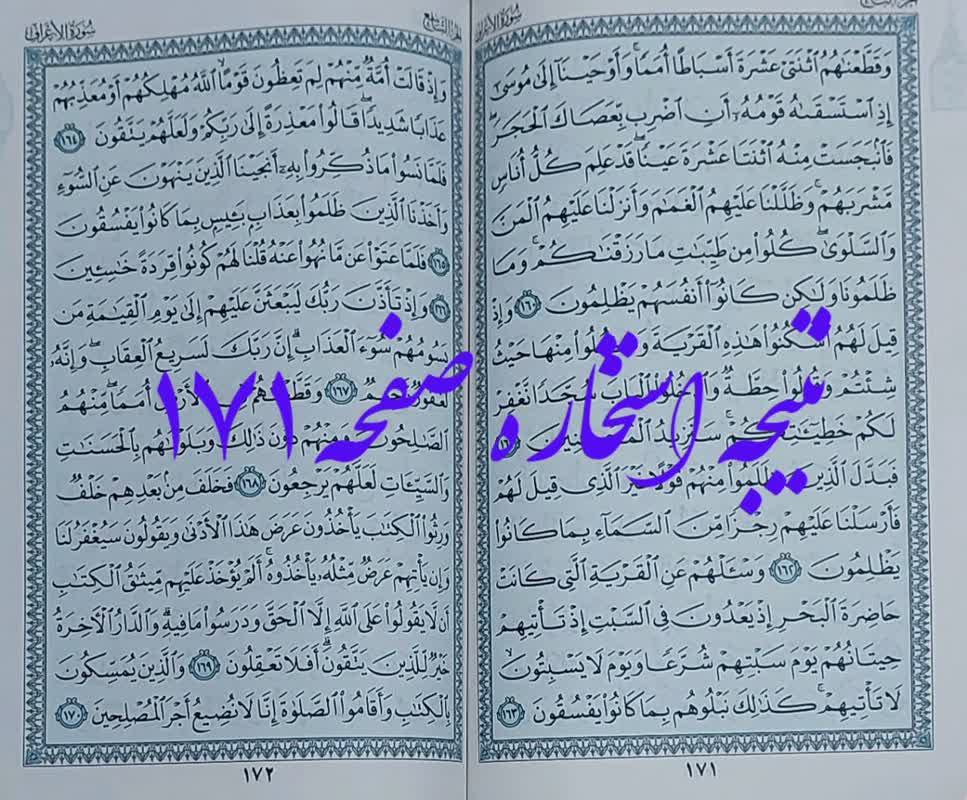 سُورَةُ الأَعۡرَافِ
وَقَطَّعۡنَٰهُمُ ٱثۡنَتَيۡ عَشۡرَةَ أَسۡبَاطًا أُمَمٗاۚ وَأَوۡحَيۡنَآ إِلَىٰ مُوسَىٰٓ
إِذِ ٱسۡتَسۡقَىٰهُ قَوۡمُهُۥٓ أَنِ ٱضۡرِب بِّعَصَاكَ ٱلۡحَجَرَۖ
فَٱنۢبَجَسَتۡ مِنۡهُ ٱثۡنَتَا عَشۡرَةَ عَيۡنٗاۖ قَدۡ عَلِمَ كُلُّ أُنَاسٖ
مَّشۡرَبَهُمۡۚ وَظَلَّلۡنَا عَلَيۡهِمُ ٱلۡغَمَٰمَ وَأَنزَلۡنَا عَلَيۡهِمُ ٱلۡمَنَّ
وَٱلسَّلۡوَىٰۖ كُلُواْ مِن طَيِّبَٰتِ مَا رَزَقۡنَٰكُمۡۚ وَمَا
ظَلَمُونَا وَلَٰكِن كَانُوٓاْ أَنفُسَهُمۡ يَظۡلِمُونَ ١٦٠ وَإِذۡ
قِيلَ لَهُمُ ٱسۡكُنُواْ هَٰذِهِ ٱلۡقَرۡيَةَ وَكُلُواْ مِنۡهَا حَيۡثُ
شِئۡتُمۡ وَقُولُواْ حِطَّةٞ وَٱدۡخُلُواْ ٱلۡبَابَ سُجَّدٗا نَّغۡفِرۡ
لَكُمۡ خَطِيٓـَٰٔتِكُمۡۚ سَنَزِيدُ ٱلۡمُحۡسِنِينَ ١٦١
فَبَدَّلَ ٱلَّذِينَ ظَلَمُواْ مِنۡهُمۡ قَوۡلًا غَيۡرَ ٱلَّذِي قِيلَ لَهُمۡ
فَأَرۡسَلۡنَا عَلَيۡهِمۡ رِجۡزٗا مِّنَ ٱلسَّمَآءِ بِمَا كَانُواْ
يَظۡلِمُونَ ١٦٢ وَسۡـَٔلۡهُمۡ عَنِ ٱلۡقَرۡيَةِ ٱلَّتِي كَانَتۡ
حَاضِرَةَ ٱلۡبَحۡرِ إِذۡ يَعۡدُونَ فِي ٱلسَّبۡتِ إِذۡ تَأۡتِيهِمۡ
حِيتَانُهُمۡ يَوۡمَ سَبۡتِهِمۡ شُرَّعٗا وَيَوۡمَ لَا يَسۡبِتُونَ
لَا تَأۡتِيهِمۡۚ كَذَٰلِكَ نَبۡلُوهُم بِمَا كَانُواْ يَفۡسُقُونَ ١٦٣
١٧١
الجُزۡءُ التَّاسِعُ سُورَةُ الأَعۡرَافِ
وَإِذۡ قَالَتۡ أُمَّةٞ مِّنۡهُمۡ لِمَ تَعِظُونَ قَوۡمًا ٱللَّهُ مُهۡلِكُهُمۡ أَوۡ مُعَذِّبُهُمۡ
عَذَابٗا شَدِيدٗاۖ قَالُواْ مَعۡذِرَةً إِلَىٰ رَبِّكُمۡ وَلَعَلَّهُمۡ يَتَّقُونَ ١٦٤
فَلَمَّا نَسُواْ مَا ذُكِّرُواْ بِهِۦٓ أَنجَيۡنَا ٱلَّذِينَ يَنۡهَوۡنَ عَنِ ٱلسُّوٓءِ
وَأَخَذۡنَا ٱلَّذِينَ ظَلَمُواْ بِعَذَابِۭ بَـِٔيسِۭ بِمَا كَانُواْ يَفۡسُقُونَ
١٦٥ فَلَمَّا عَتَوۡاْ عَن مَّا نُهُواْ عَنۡهُ قُلۡنَا لَهُمۡ كُونُواْ قِرَدَةً خَٰسِـِٔينَ
١٦٦ وَإِذۡ تَأَذَّنَ رَبُّكَ لَيَبۡعَثَنَّ عَلَيۡهِمۡ إِلَىٰ يَوۡمِ ٱلۡقِيَٰمَةِ مَن
يَسُومُهُمۡ سُوٓءَ ٱلۡعَذَابِۗ إِنَّ رَبَّكَ لَسَرِيعُ ٱلۡعِقَابِۖ وَإِنَّهُۥ
لَغَفُورٞ رَّحِيمٞ ١٦٧ وَقَطَّعۡنَٰهُمۡ فِي ٱلۡأَرۡضِ أُمَمٗاۖ مِّنۡهُمُ
ٱلصَّٰلِحُونَ وَمِنۡهُمۡ دُونَ ذَٰلِكَۖ وَبَلَوۡنَٰهُم بِٱلۡحَسَنَٰتِ
وَٱلسَّيِّـَٔاتِ لَعَلَّهُمۡ يَرۡجِعُونَ ١٦٨ فَخَلَفَ مِنۢ بَعۡدِهِمۡ خَلۡفٞ
وَرِثُواْ ٱلۡكِتَٰبَ يَأۡخُذُونَ عَرَضَ هَٰذَا ٱلۡأَدۡنَىٰ وَيَقُولُونَ سَيُغۡفَرُ لَنَا
وَإِن يَأۡتِهِمۡ عَرَضٞ مِّثۡلُهُۥ يَأۡخُذُوهُۚ أَلَمۡ يُؤۡخَذۡ عَلَيۡهِم مِّيثَٰقُ ٱلۡكِتَٰبِ
أَن لَّا يَقُولُواْ عَلَى ٱللَّهِ إِلَّا ٱلۡحَقَّ وَدَرَسُواْ مَا فِيهِۗ وَٱلدَّارُ ٱلۡأٓخِرَةُ
خَيۡرٞ لِّلَّذِينَ يَتَّقُونَۚ أَفَلَا تَعۡقِلُونَ ١٦٩ وَٱلَّذِينَ يُمَسِّكُونَ
بِٱلۡكِتَٰبِ وَأَقَامُواْ ٱلصَّلَوٰةَ إِنَّا لَا نُضِيعُ أَجۡرَ ٱلۡمُصۡلِحِينَ ١٧٠
١٧٢
نتیجه استخاره صفحه ۱۷۱